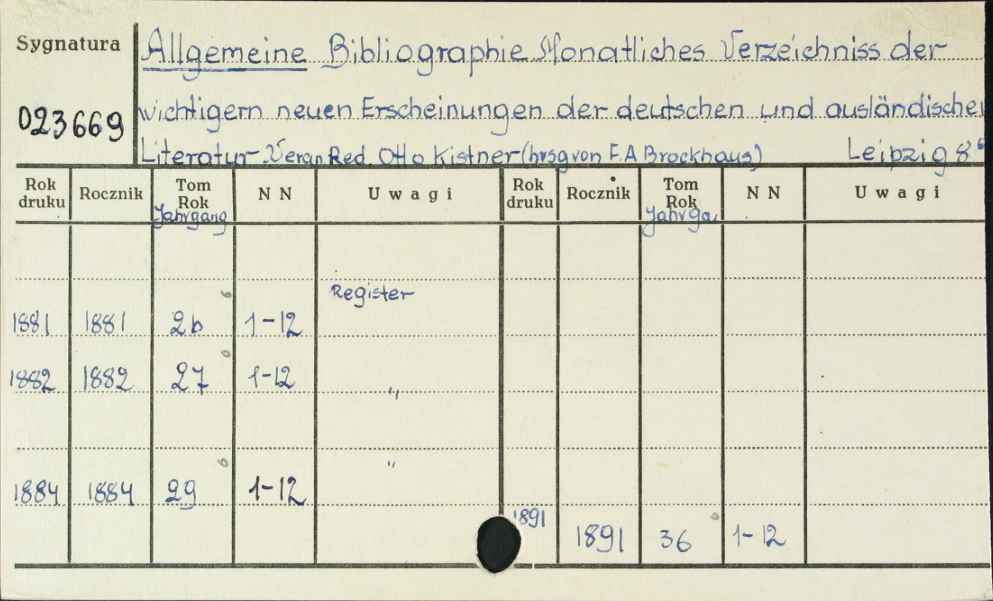 Sygnatura Allgemeine Bibliographie Monatliches Verzeichniss der
023669 wichtigern neuen Erscheinungen der deutschen und ausländischen
Literatur. Veran Red. Otto Kistner (hrsg von F.A Brockhaus) Leipzig 8°
Rok druku Rocznik Tom Rok Jahrgang N N Uwagi Rok druku Rocznik Tom Rok Jahrga. N N Uwagi
Register
1881 1881 26 1-12
1882 1882 27 1-12 "
"
1884 1884 29 1-12
1891 1891 36 1-12